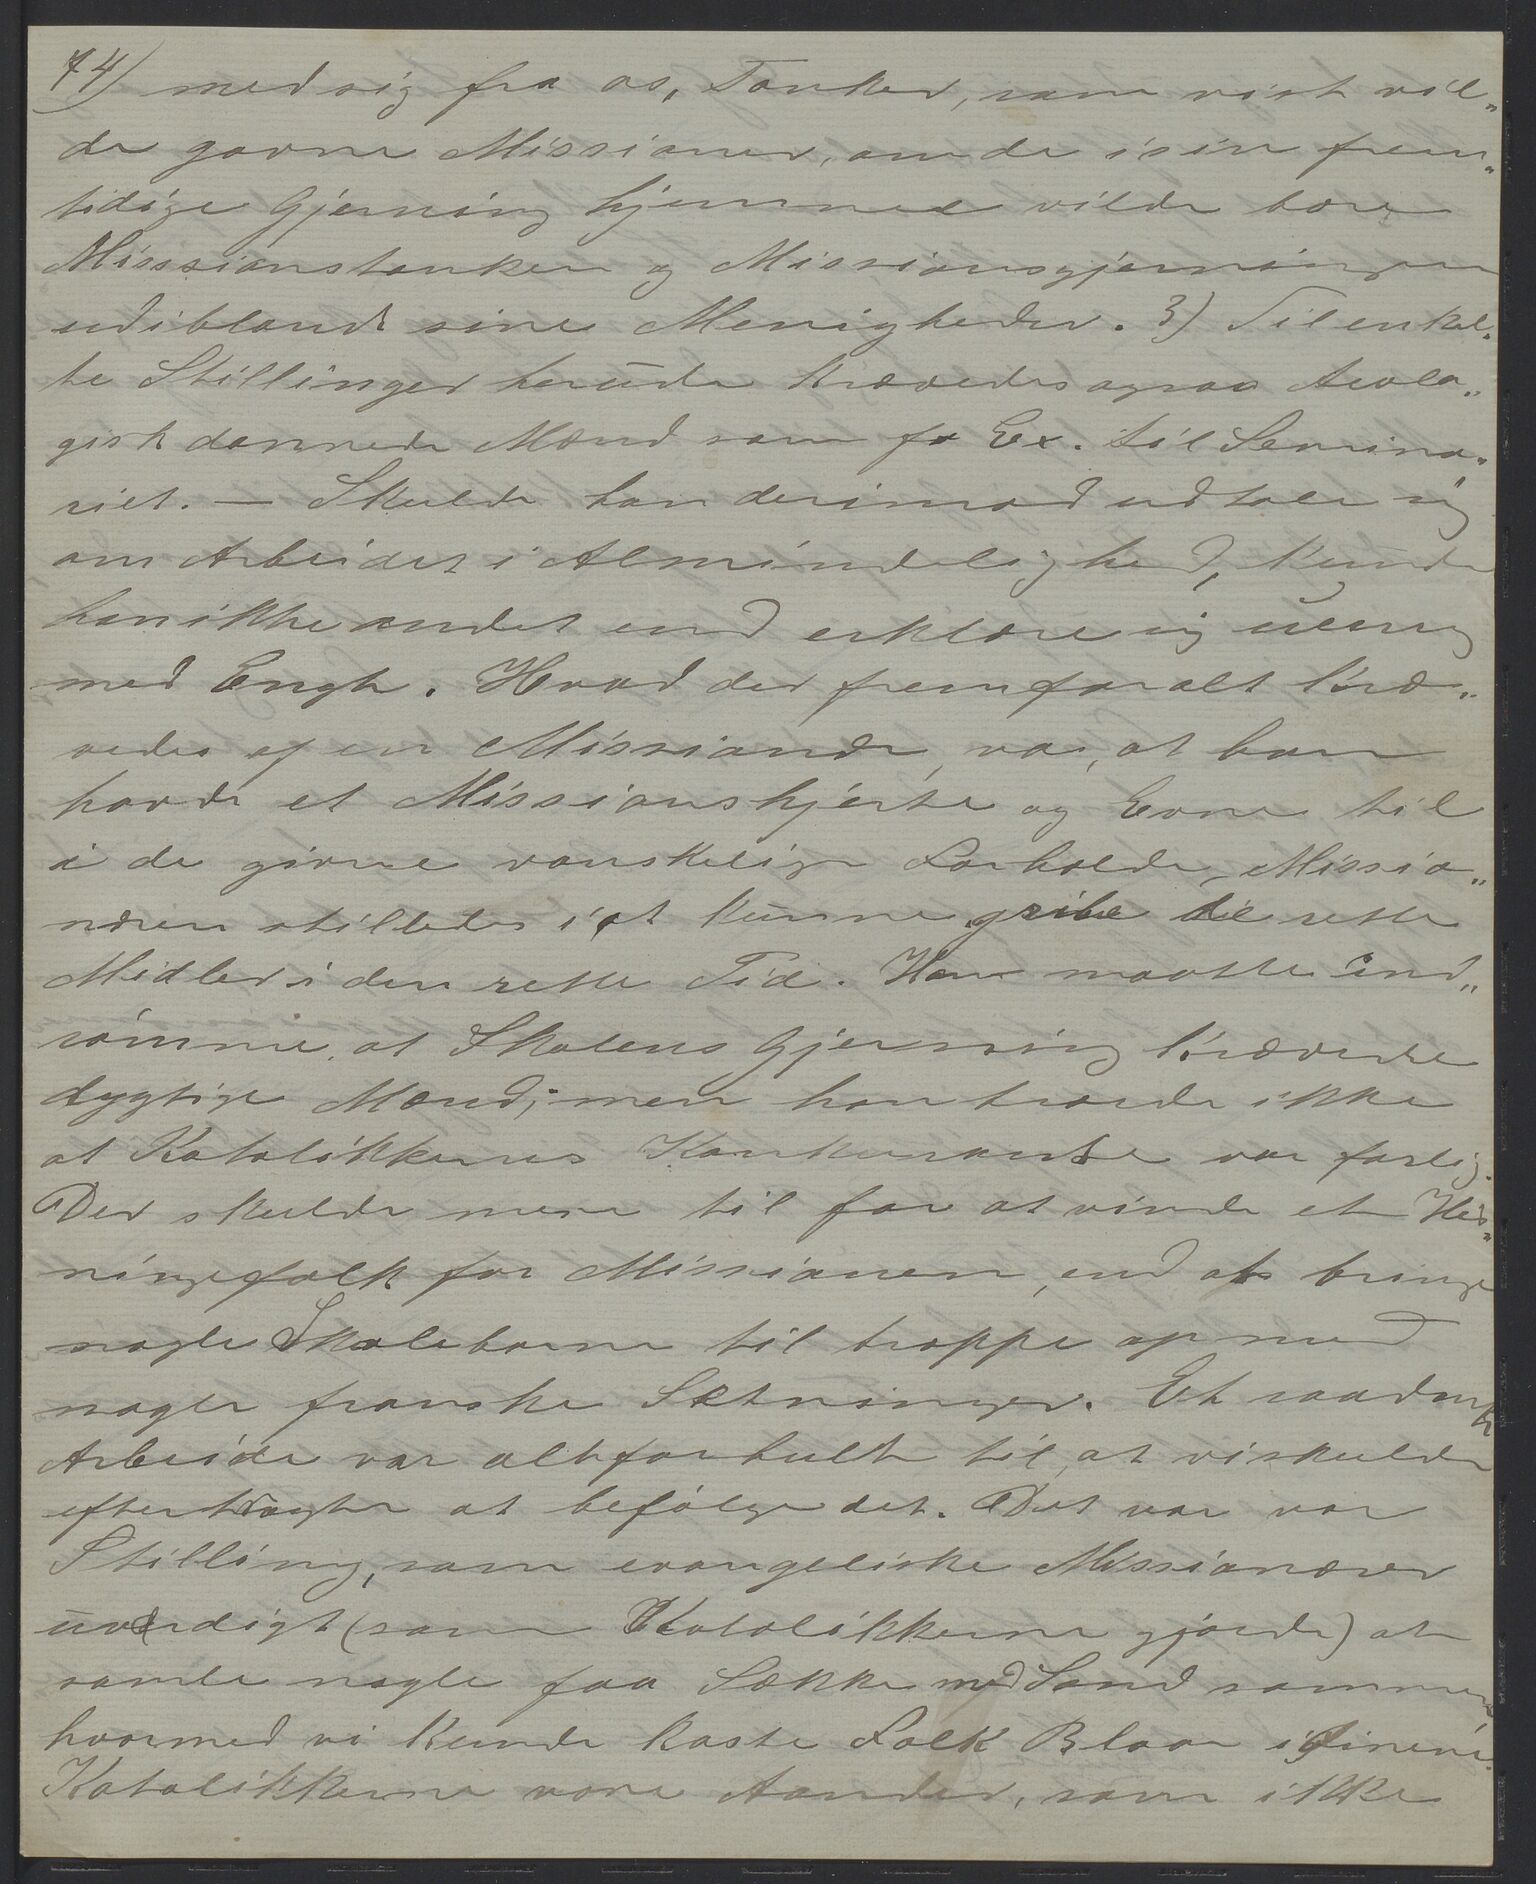 74) med sig fra os, Tanker, som vist vil„
de gavne Missionen, om de i sin frem„
tidige Gjerning hjemme vilde bære
Missionstanken og Missionsgjerningen
ud iblandt sine Menigheder. 3) Til enkel„
te Stillinger herude krævedes ogsaa teolo„
gisk dannede Mænd som f. Ex. til Semina„
riet. — Skulde han derimod udtale sig
om Arbeidet i Almindelighed, kunde
han ikke andet end erklære sig uenig
med Engh. Hvad der fremfor alt kræ„
vedes af en Missionær, var, at han
havde et Missionshjerte og Evne til
i de givne vanskelige Forholde, Missio„
næren stilledes i at kunne gribe til rette
Midler i den rette Tid. Han maatte ind„
rømme at Skolens Gjerning krævede
dygtige Mænd; men han troede ikke
at Katolikkernes Konkuranse var farlig.
Der skulde mere til for at vinde et Hed„
ningefolk for Missionen, end at bringe
nogle Skolebørn til troppe op med
nogle franske Sætninger. Et saadant
Arbeide var altfor hult til, at vi skulde
eftertragte at befølge det. Det var vor
Stilling, som evangeliske Missionærer
uværdigt (som Katolikkerne gjorde) at
samle nogle faa Sække med Sand sammen
hvormed vi kunde kaste Folk Blaar i Øinene.
Katolikkerne vare Aander, som ikke